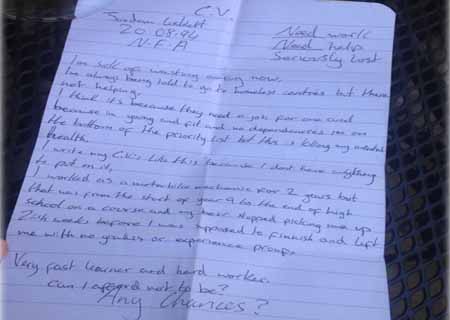 C.V.
20.08.96
N.F.A
Need work
Need help
Seriously Lost
I'm sick of wasting away now.
I'm always being told to go to homeless centres but there
not helping.
I think it's because they need a job for one and
because im young and fit and no dependencies im on
the bottom of the priority list but this is killing my mental
health.
I write my C.V.s like this because I dont have anything
to put on it,
I worked as a motor bike mechanic for 2 years but
that was from the start of year 9 to the end of high
school on a course and my stopped picking me up
weeks before I was supposed to finnish and left
me with no grades or experience proof,
Very fast learner and hard worker.
can I afford not to be?
Any Chances?